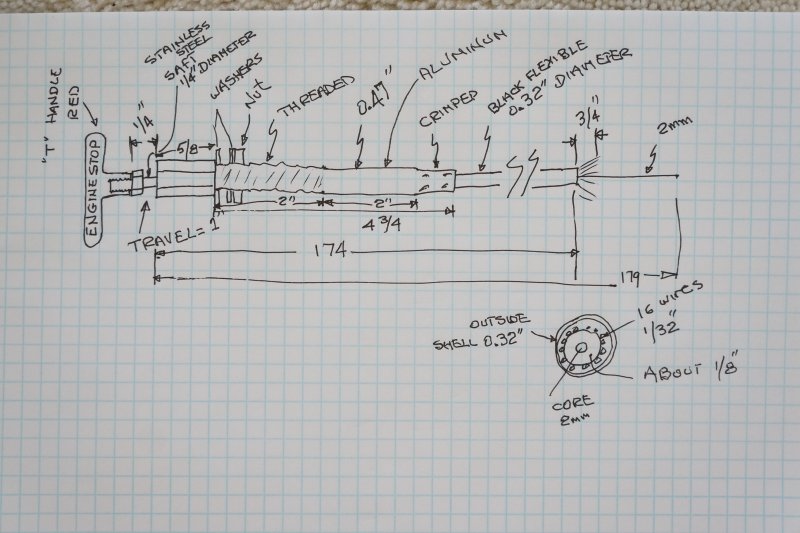 "T" HANDLE
RED
STAINLESS
STEEL
SAFT
1/4" DIAMETER
WASHERS
NUT
THREADED
0.47"
ALUMINUM
CRIMPED
BLACK FLEXIBLE
0.32" DIAMETER
3/4"
2mm
1/4"
5/8
ENGINE STOP
TRAVEL = 1"
2"
2"
4 3/4
174
179
OUTSIDE
SHELL 0.32"
16 WIRES
1/32"
ABOUT 1/8"
CORE
2mm